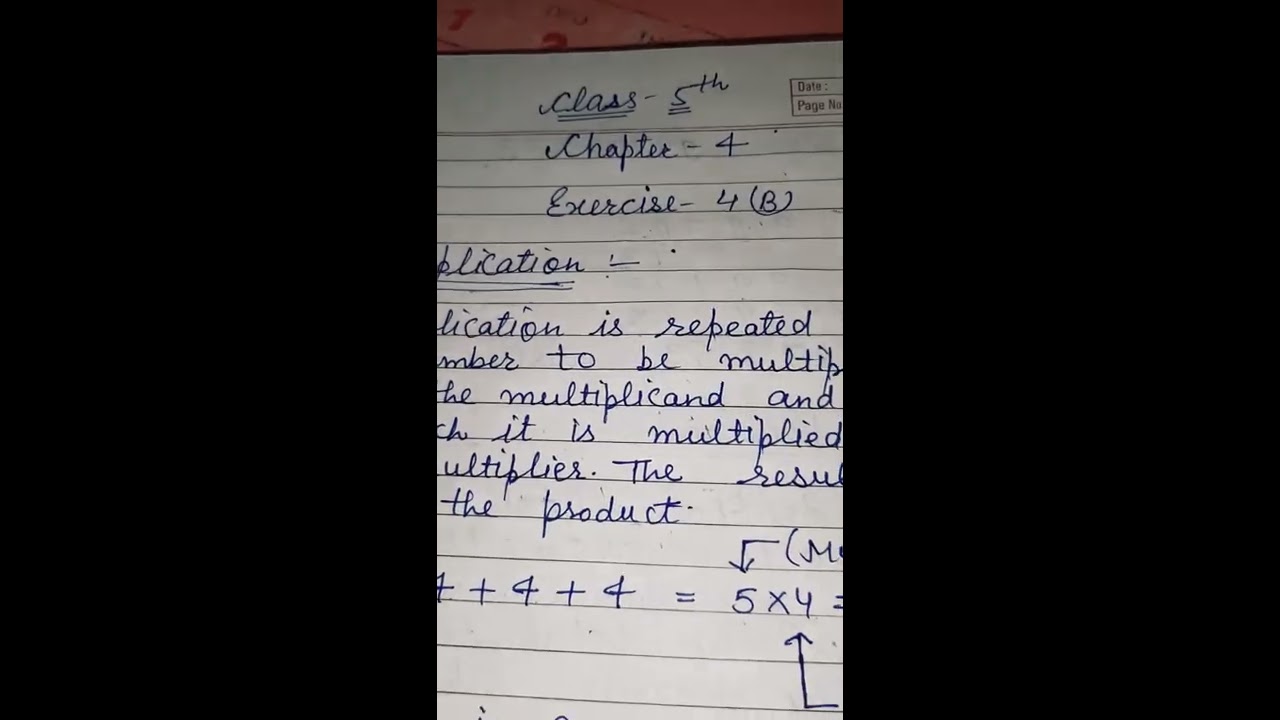 Date :
Class - 5th
Page No
Chapter - 4
Exercise - 4 (B)
plication :-
lication is repeated
mber to be multip
he multiplicand and
ch it is multiplied
ultiplier. The resul
the product.
(M
+ 4 + 4 = 5 × 4 =